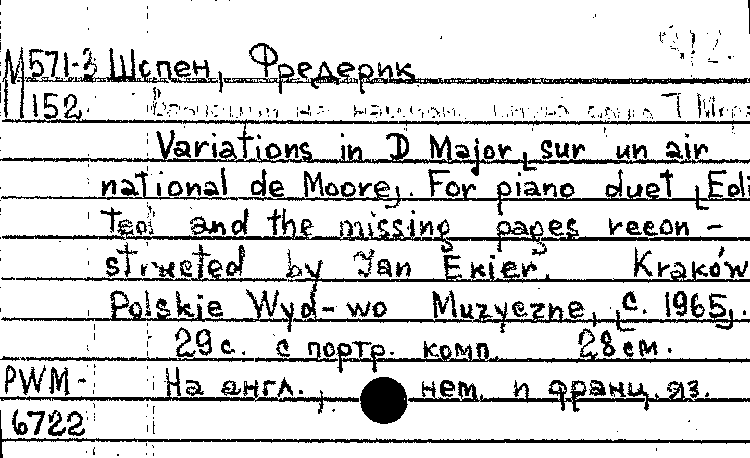 М 571-3 Шопен, Фредерик
152
Variations in D Major [sur un air
national de Moore]. For piano duet [Edi
ted and the missing pages recon-
structed by Jan Ekier. Kraków
Polskie Wyd-wo Muzyczne, [c. 1965].
29 с. с портр. комп. 28 см.
PWM- На англ., нем. и франц. яз.
6722